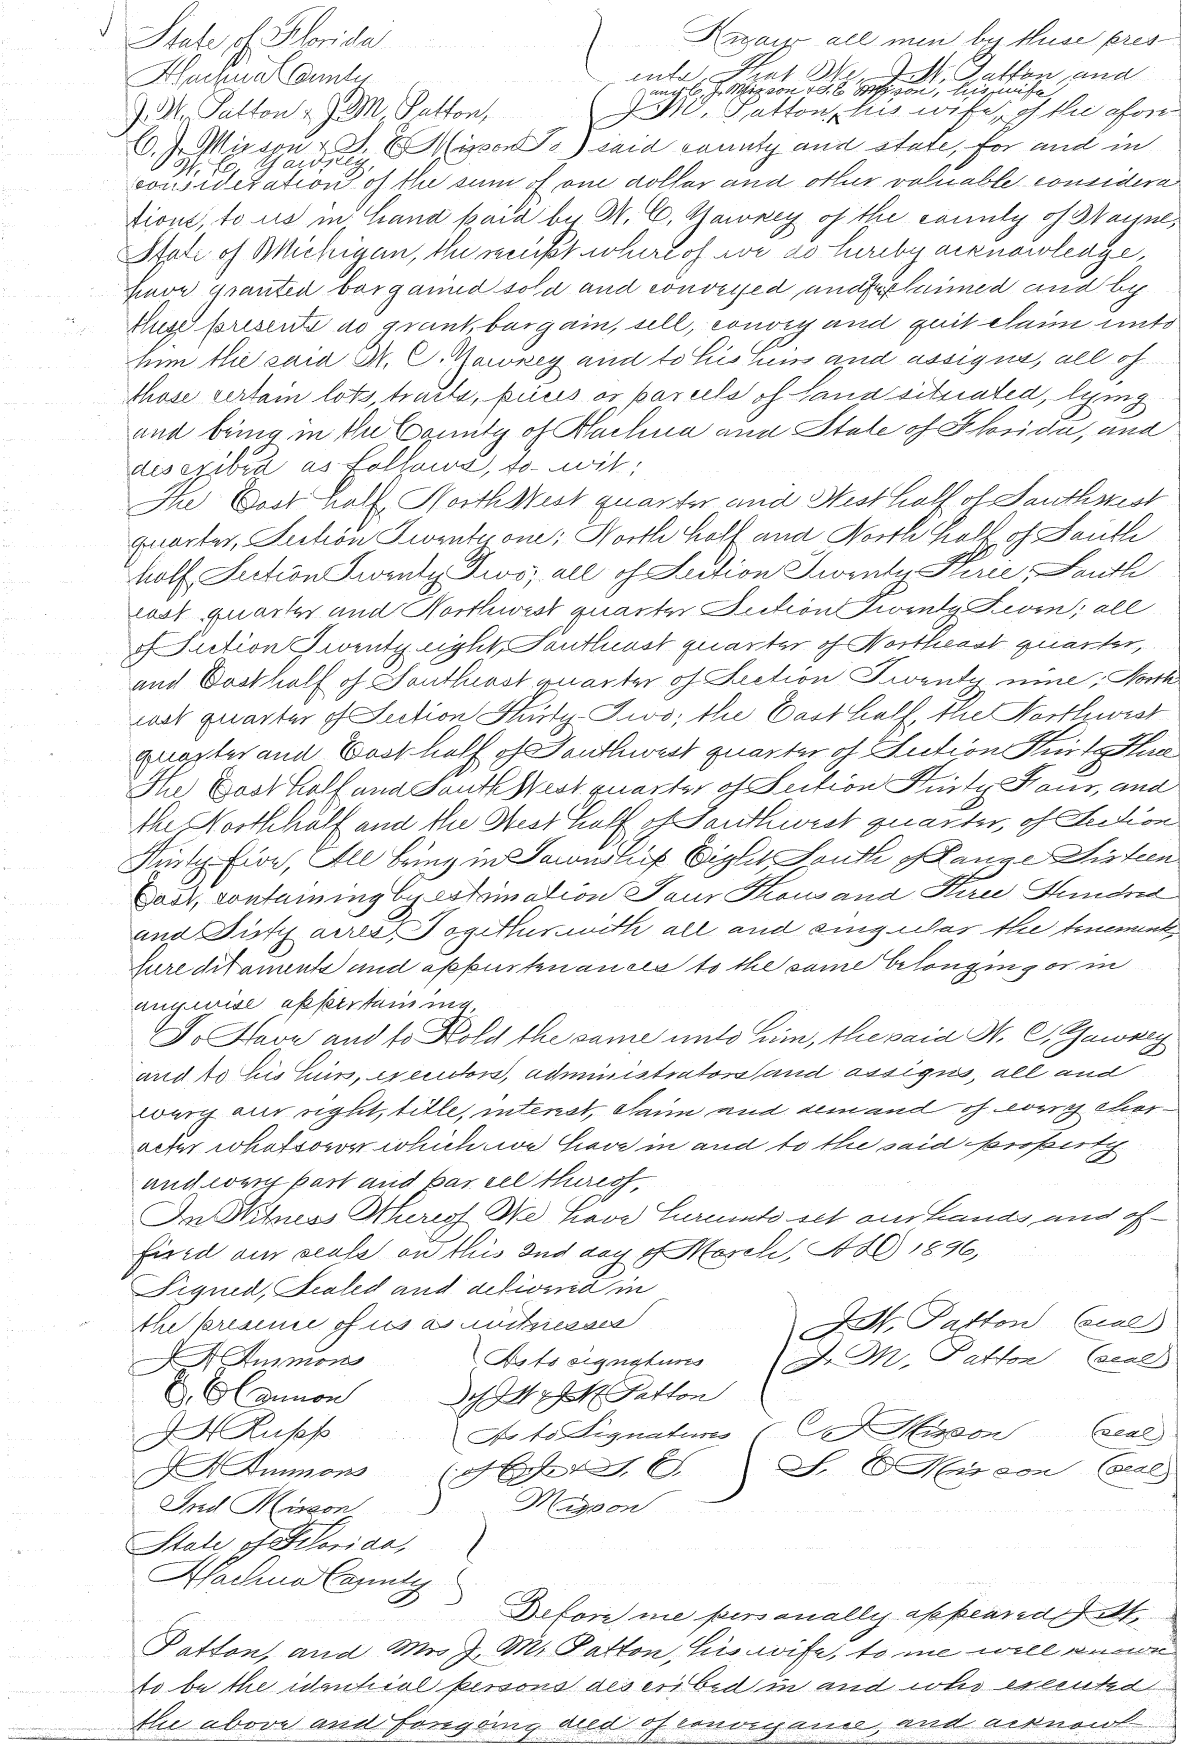 State of Florida
Alachua County
J. W. Patton & J. M. Patton,
C. J. Mixson & S. E. Mixson To
W. C. Yawkey
Know all men by these pres-
ents, That We, J. W. Patton and
and C. J. Mixson & S. E. Mixson, his wife
J. M. Patton, his wife, of the afore
said county and state, for and in
consideration of the sum of one dollar and other valuable considera
tions, to us in hand paid by W. C. Yawkey of the county of Wayne,
State of Michigan, the receipt whereof we do hereby acknowledge,
have granted bargained sold and conveyed and claimed and by
these presents do grant, bargain, sell, convey and quit claim unto
him the said W. C. Yawkey and to his heirs and assigns, all of
those certain lots, tracts, pieces or parcels of land situated, lying
and being in the County of Alachua and State of Florida, and
described as follows, to-wit;
The East half, NorthWest quarter and West half of Southwest
quarter, Section Twenty one; North half and North half of South
half, Section Twenty Two; all of Section Twenty Three; South
east quarter and Northwest quarter Section Twenty Seven; all
of Section Twenty eight, Southeast quarter of Northeast quarter,
and East half of Southeast quarter of Section Twenty nine; North
east quarter of Section Thirty-Two; the East half, the Northwest
quarter and East half of Southwest quarter of Section Thirty Three
The East half and SouthWest quarter of Section Thirty Four, and
the North half and the West half of Southwest quarter, of Section
Thirty-five, All being in Township Eight, South of Range Sixteen
East, containing by estimation Four Thousand Three Hundred
and Sixty acres, Together with all and singular the tenements,
hereditaments and appurtenances to the same belonging or in
anywise appertaining
To Have and to Hold the same unto him, the said W. C. Yawkey
and to his heirs, executors, administrators and assigns, all and
every our right, title, interest, claim and demand of every char-
acter whatsoever which we have in and to the said property
and every part and parcel thereof,
In Witness Whereof We have hereunto set our hands and af-
fixed our seals on this 2nd day of March, A D 1896,
Signed, Sealed and delivered in
the presence of us as witnesses
J. W. Patton (seal)
J A Ammons As to signatures J. M. Patton (seal)
E. E Cannon of J W & J M Patton
J H Rupp As to Signatures C J Mixson (seal)
J A Ammons of C J & S. E. S. E Mixson (seal)
Ind Mixson Mixson
State of Florida,
Alachua County
Before me personally appeared J. W.
Patton, and Mrs J. M. Patton, his wife, to me well known
to be the identical persons described in and who executed
the above and foregoing deed of conveyance, and acknowl-